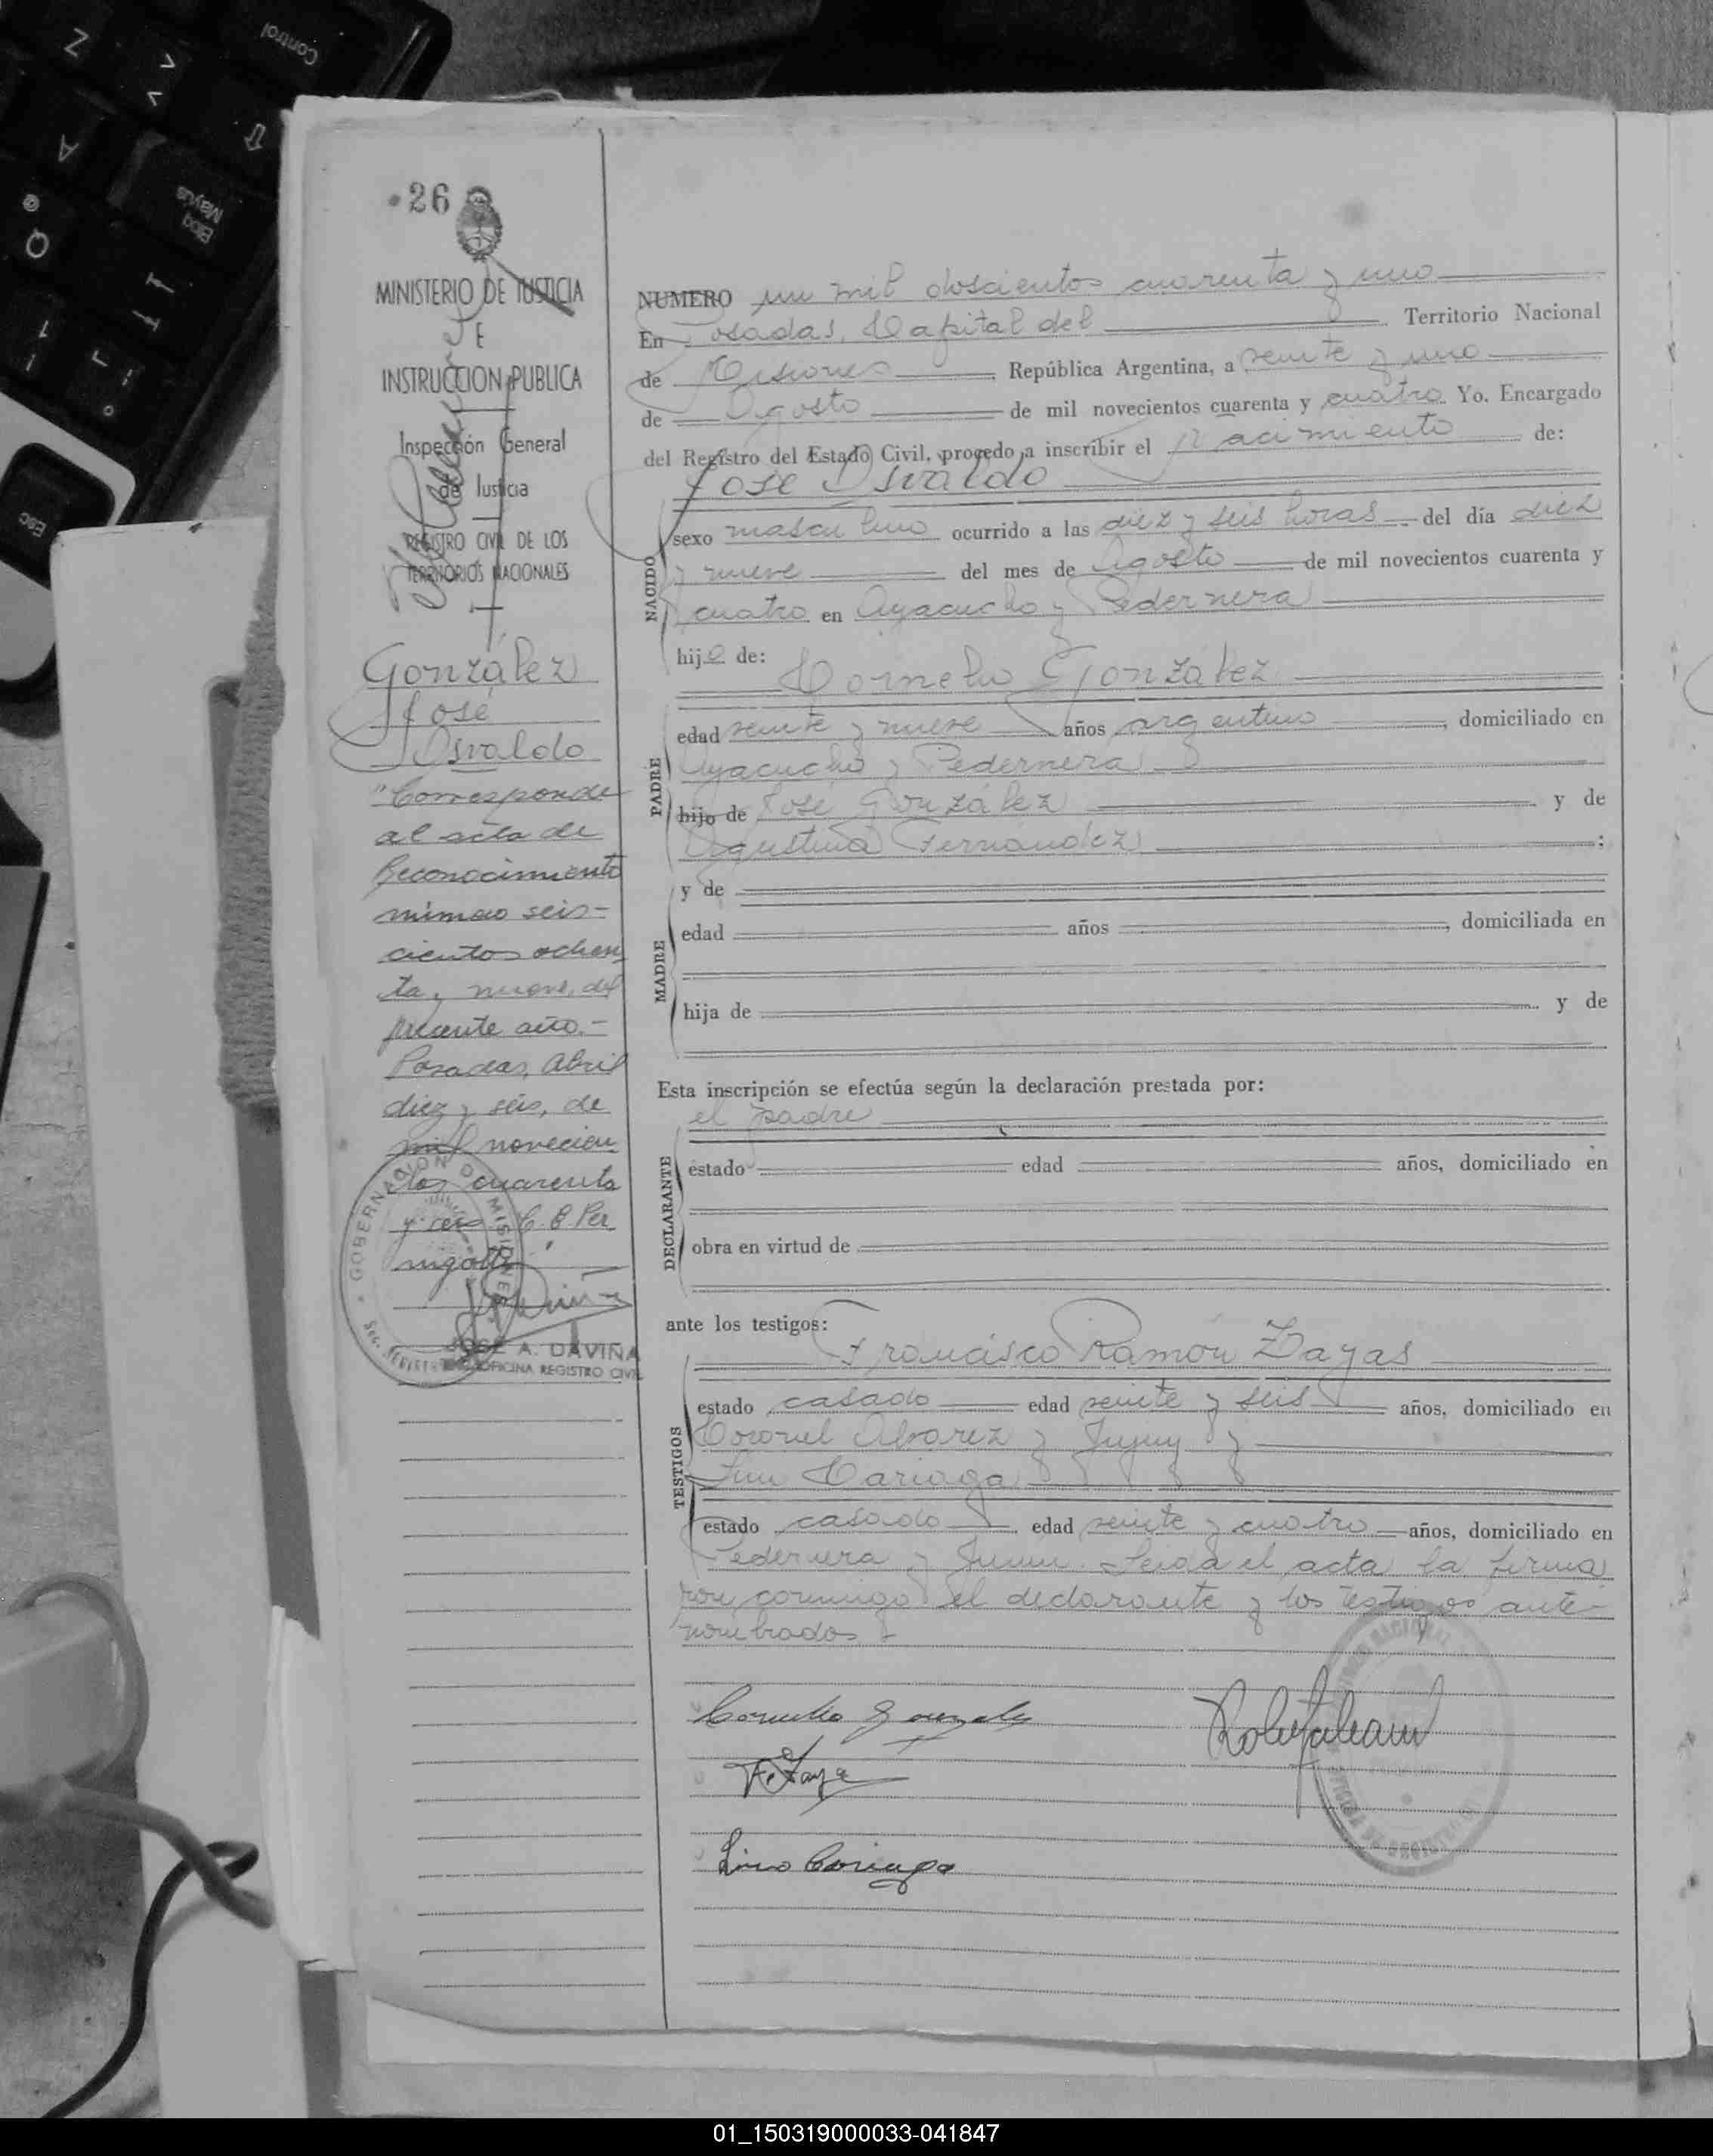 26
MINISTERIO DE JUSTICIA
E
INSTRUCCION PUBLICA
Inspección General
de Justicia
REGISTRO CIVIL DE LOS
TERRITORIOS NACIONALES
González
José
Osvaldo
"Corresponde
al acta de
Reconocimiento
número seis-
cientos ochen
ta y nueve, del
presente año.-
Posadas, Abril
diez y seis, de
mil novecien
tos cuarenta
y seis
GOBERNACION DE MISIONES
JOSÉ A. DAVIÑA
OFICINA REGISTRO CIVIL
NUMERO un mil doscientos cuarenta y uno
En Posadas, Capital del Territorio Nacional
de Misiones República Argentina, a veinte y uno
de Agosto de mil novecientos cuarenta y cuatro Yo, Encargado
del Registro del Estado Civil, procedo a inscribir el nacimiento de:
José Osvaldo
NACIDO
sexo masculino ocurrido a las diez y seis horas del día diez
y nueve del mes de Agosto de mil novecientos cuarenta y
cuatro en Ayacucho y Pedernera
hijo de:
Cornelio González
PADRE
edad veinte y nueve años argentino, domiciliado en
Ayacucho y Pedernera
hijo de José González y de
Agustina Fernández;
MADRE
y de
edad años, domiciliada en
hija de y de
Esta inscripción se efectúa según la declaración prestada por:
el padre
DECLARANTE
estado edad años, domiciliado en
obra en virtud de
ante los testigos:
Francisco Ramón Zayas
TESTIGOS
estado casado edad veinte y seis años, domiciliado en
Coronel Alvarez y Jujuy y
Lino Cariaga
estado casado edad veinte y cuatro años, domiciliado en
Pedernera y Junin. Leida el acta la firma
ron conmigo el declarante y los testigos ante-
nombrados
Cornelio Gonzalez
Lino Cariaga
01_150319000033-041847